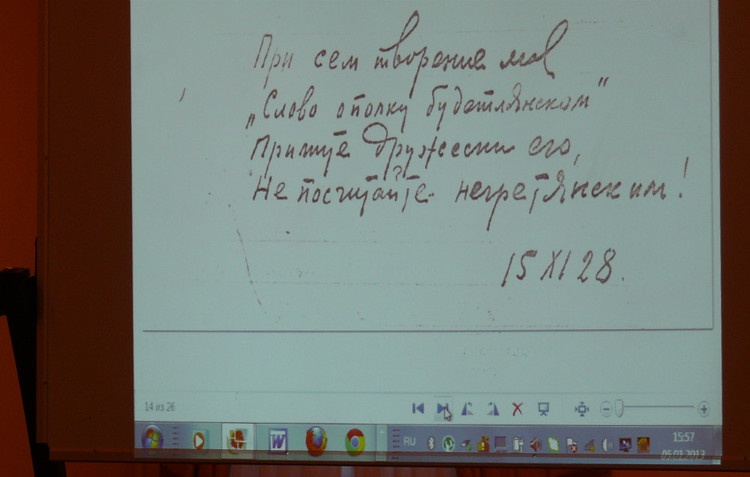 При сем творение мов
„Слово о полку будетлянском"
Примите дружески его,
Не посчитайте негретянским!
15 XI 28.
14 из 26
RU
15:57
05.03.2013